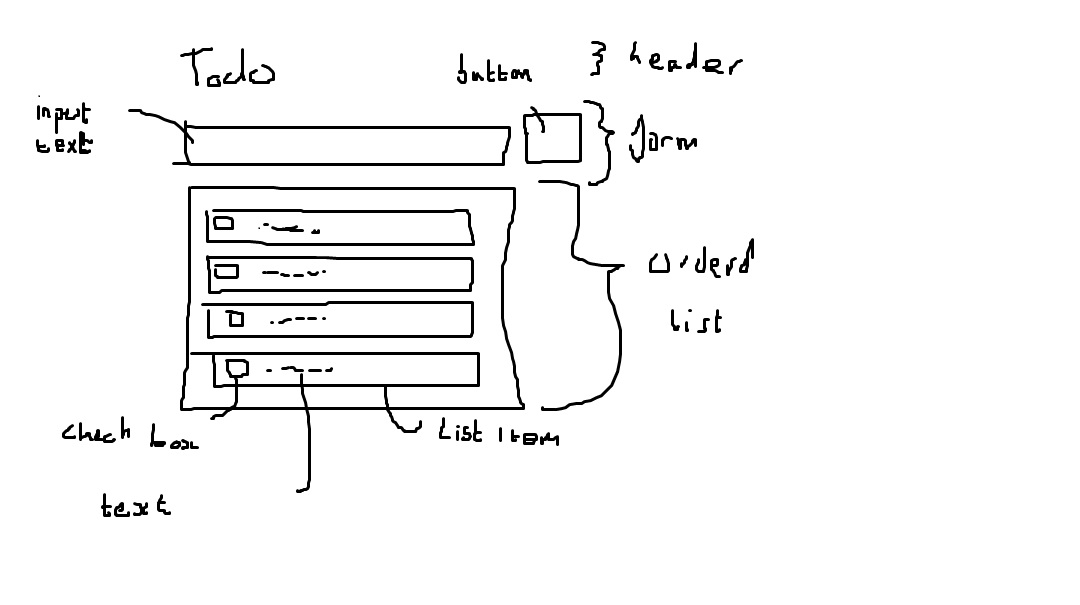 Todo
button
} header
input
text
} form
orderd
list
check box
List Item
text